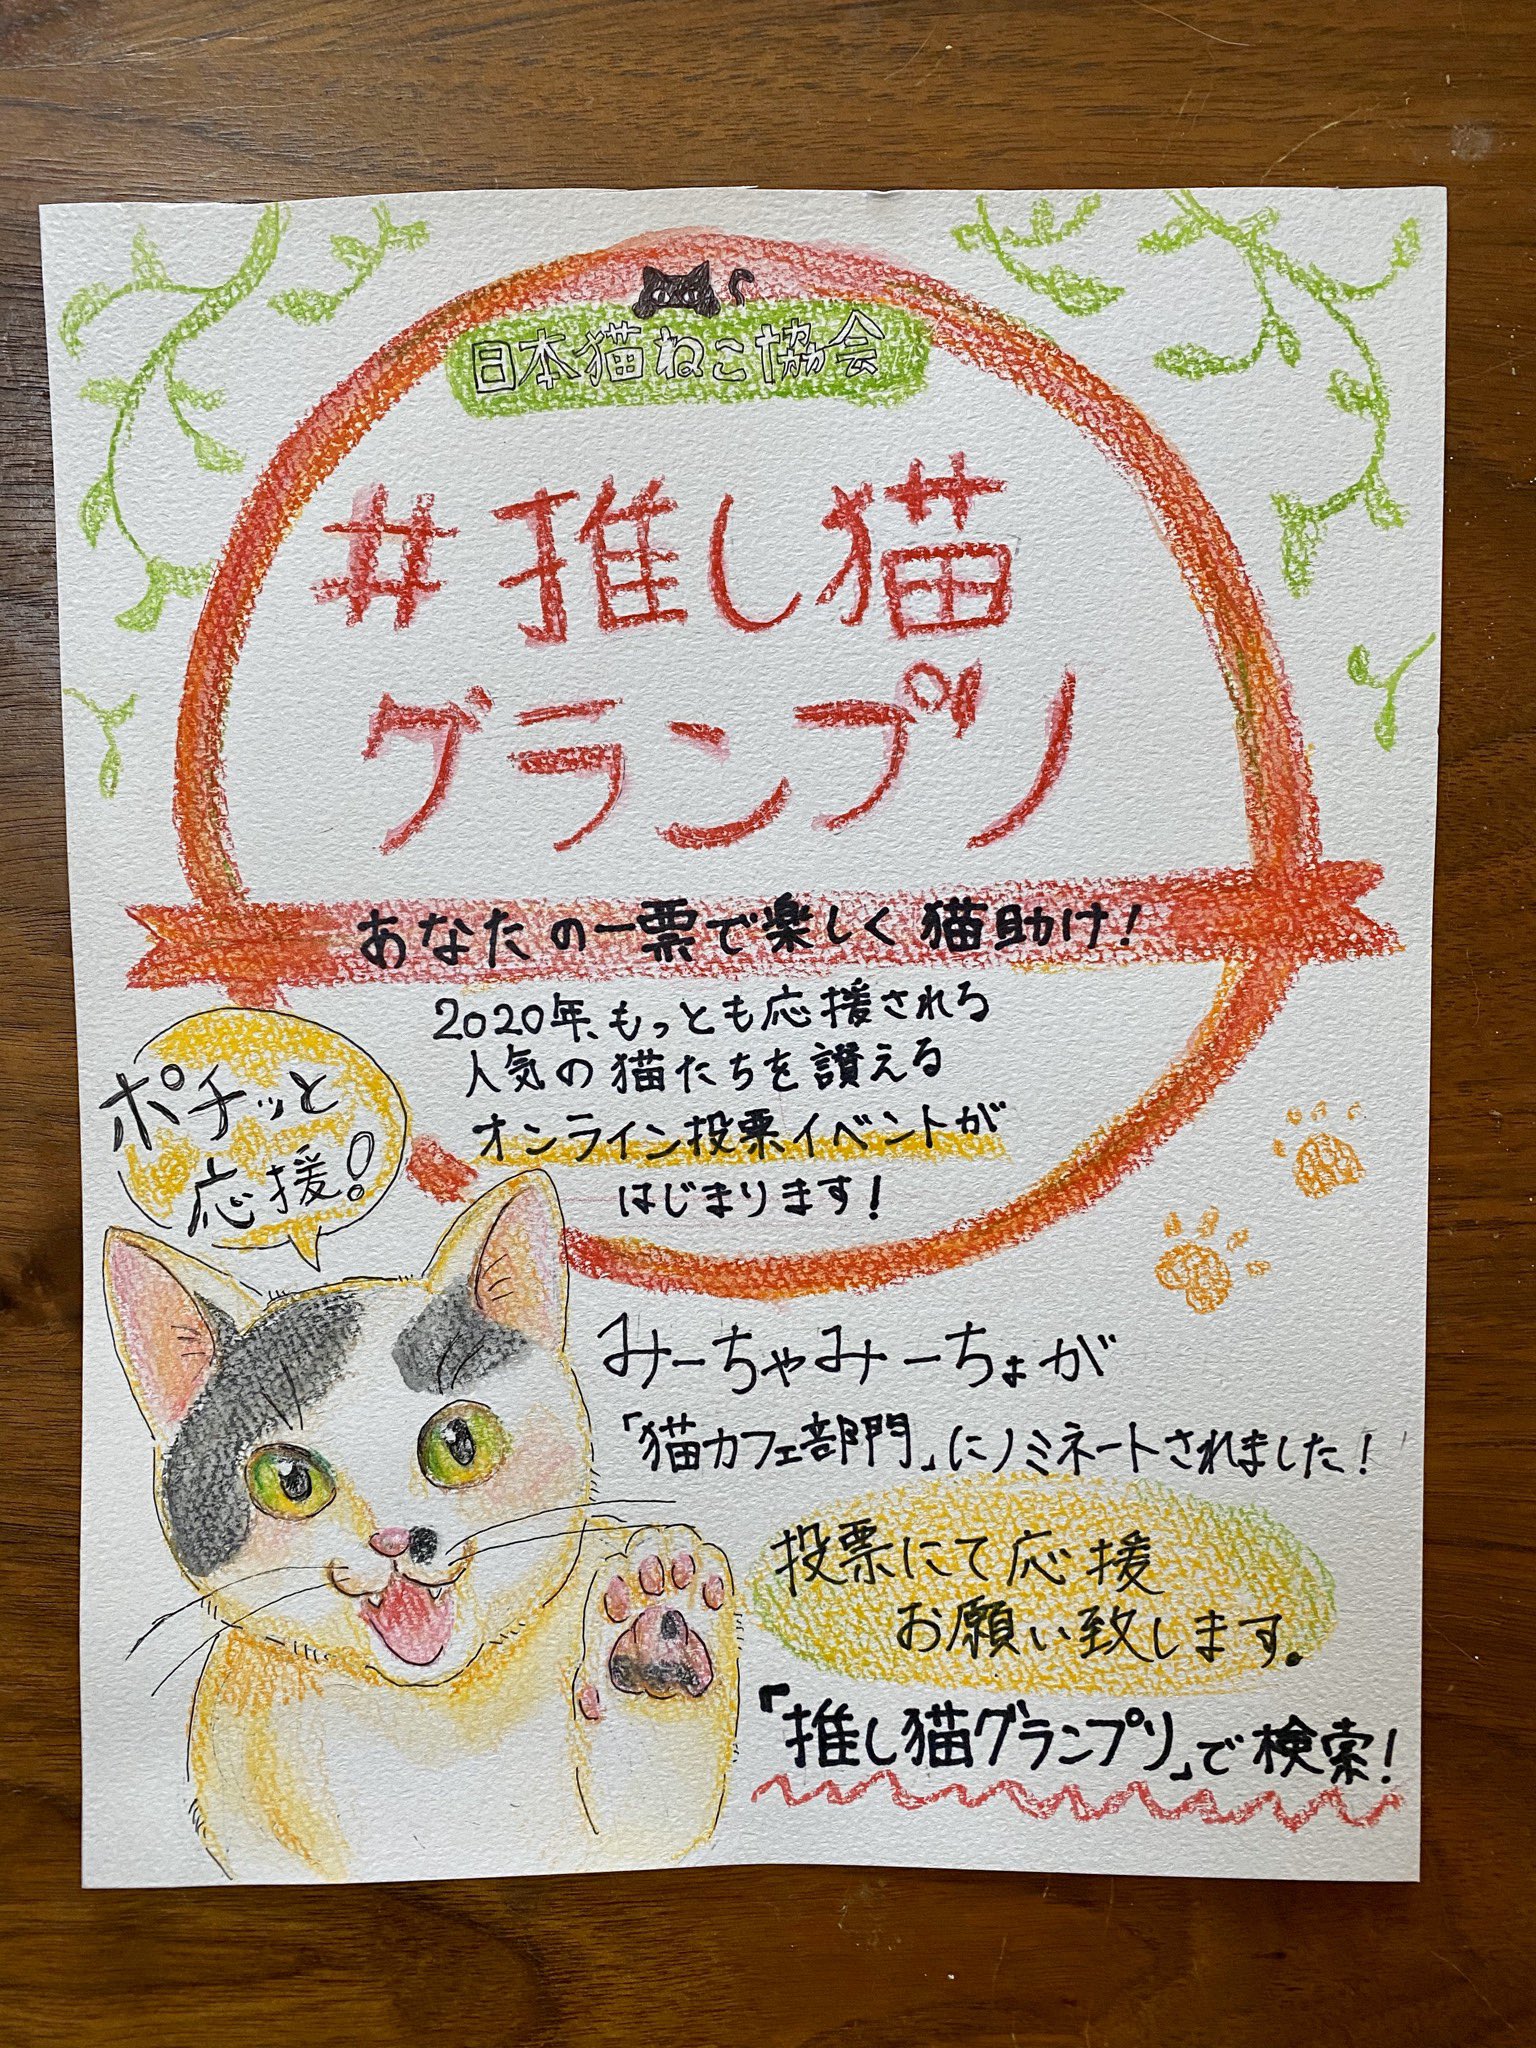 日本猫ねこ協会
#推し猫
グランプリ
あなたの一票で楽しく猫助け!
2020年、もっとも応援される
人気の猫たちを讃える
オンライン投票イベントが
はじまります!
ポチッと
応援!
みーちゃみーちょが
「猫カフェ部門」にノミネートされました!
投票にて応援
お願い致します。
「推し猫グランプリ」で検索!